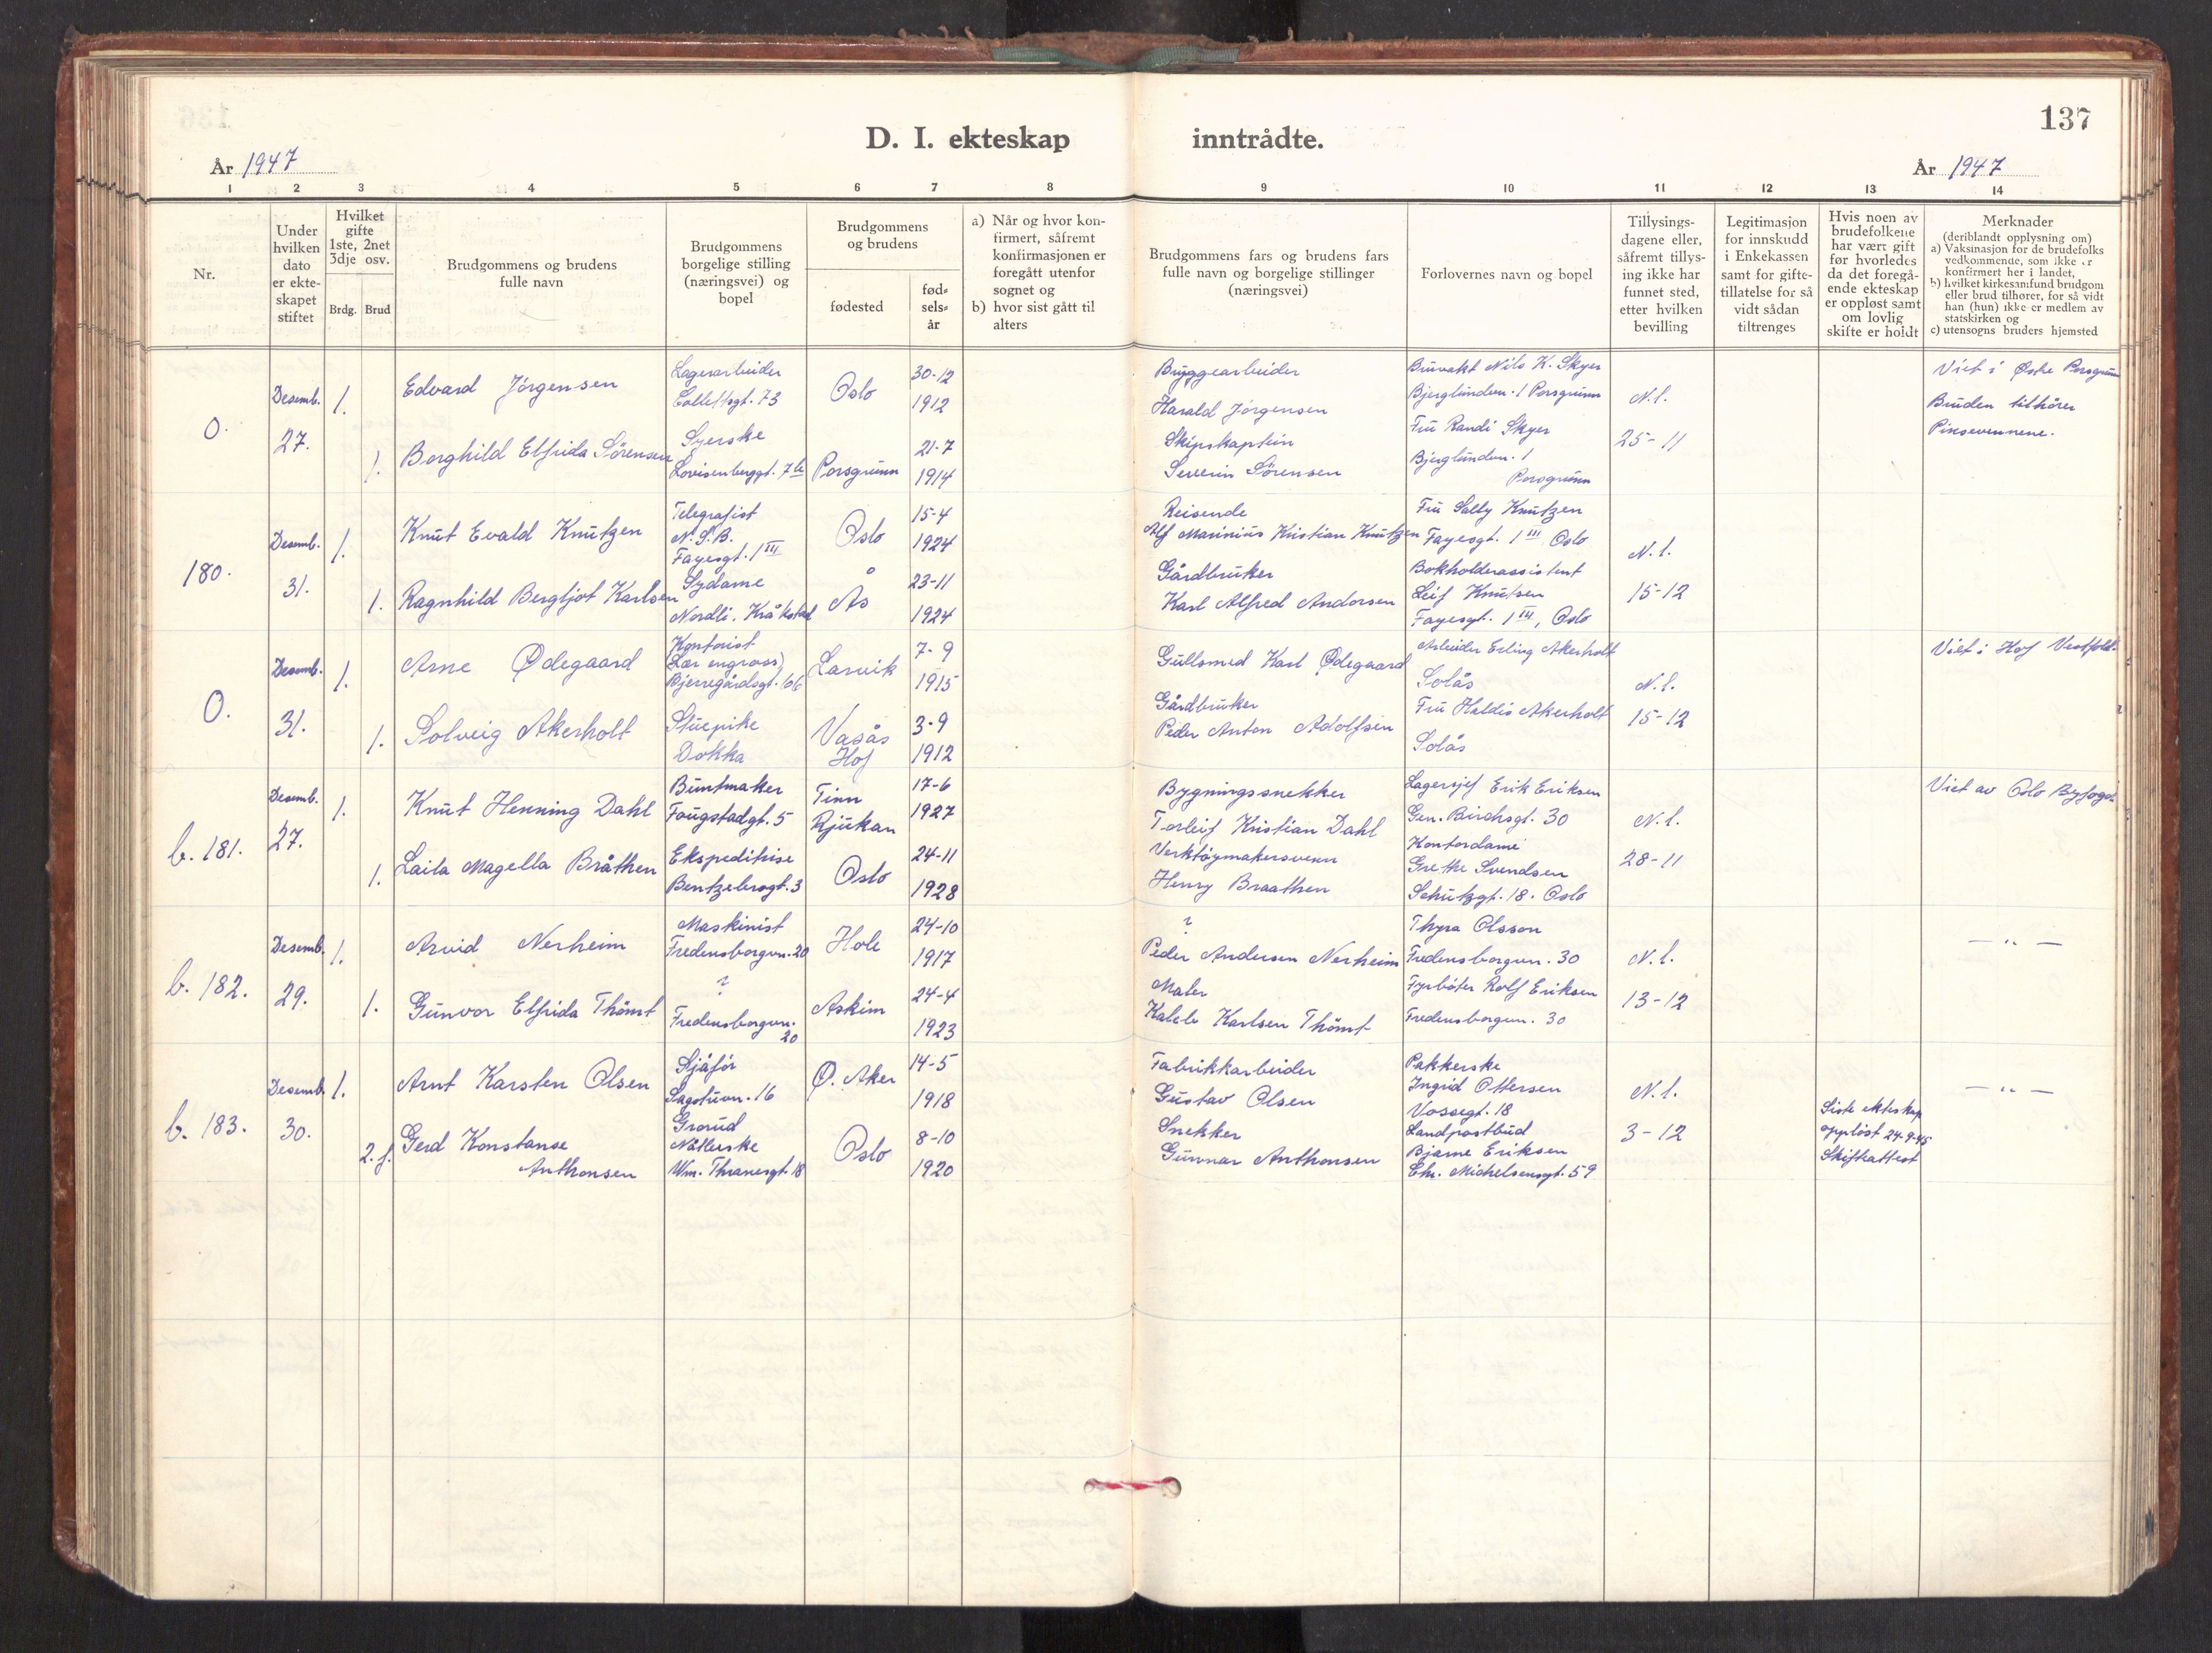 137
D. I. ekteskap inntrådte.
År 1947
År 1947
1 2 3 4 5 6 7 8 9 10 11 12 13 14
Nr.
Under
hvilken
dato
er ekte-
skapet
stiftet
Hvilket
gifte
1ste, 2net
3dje osv.
Brdg. Brud
Brudgommens og brudens
fulle navn
Brudgommens
borgelige stilling
(næringsvei) og
bopel
Brudgommens
og brudens
fødested
fød-
sels-
år
a) Når og hvor kon-
firmert, såfremt
konfirmasjonen er
foregått utenfor
sognet og
b) hvor sist gått til
alters
Brudgommens fars og brudens fars
fulle navn og borgelige stillinger
(næringsvei)
Forlovernes navn og bopel
Tillysings-
dagene eller,
såfremt tillys-
ing ikke har
funnet sted,
etter hvilken
bevilling
Legitimasjon
for innskudd
i Enkekassen
samt for gifte-
tillatelse for så
vidt sådan
tiltrenges
Hvis noen av
brudefolkene
har vært gift
før hvorledes
da det foregå-
ende ekteskap
er oppløst samt
om lovlig
skifte er holdt
Merknader
(deriblandt opplysning om)
a) Vaksinasjon for de brudefolks
vedkommende, som ikke er
konfirmert her i landet,
b) hvilket kirkesamfund brudgom
eller brud tilhører, for så vidt
han (hun) ikke er medlem av
statskirken og
c) utensogns bruders hjemsted
0.
Desemb.
27.
1.
1.
Edvard Jörgensen
Borghild Elfrida Sörensen
Lagerarbeider
Collettsgt. 73
Syerske
Lovisenberggt. 7b
Oslo
Porsgrunn
30-12
1912
21-7
1914
Bryggearbeider
Harald Jörgensen
Skipskaptein
Severin Sörensen
Bruvakt Nils K. Skyer
Bjerglunden. 1 Porsgrunn
Fru Randi Skyer
Bjerglunden. 1
Porsgrunn
N.l.
25-11
Viet i Østre Porsgrunn
Bruden tilhører
Pinsevennene.
180.
Desemb.
31.
1.
1.
Knut Evald Knutzen
Ragnhild Bergljot Karlsen
Telegrafist
N.S.B.
Fayesgt. 1 III
Sydame
Nordli, Kråkstad
Oslo
Ås
15-4
1924
23-11
1924
Reisende
Alf Marinius Kristian Knutzen
Gårdbruker
Karl Alfred Andersen
Fru Sally Knutzen
Fayesgt. 1 III Oslo
Bokholderassistent
Leif Knutsen
Fayesgt. 1 III, Oslo
N.l.
15-12
0.
Desemb.
31.
1.
1.
Arne Ødegaard
Solveig Akerholt
Kontorist
(Lær engross)
Bjerregårdsgt. 66
Stuepike
Dokka
Larvik
Vasås
Hof
7-9
1915
3-9
1912
Gullsmed Karl Ødegaard
Gårdbruker
Peder Anton Adolfsen
Arbeider Erling Akerholt
Solås
Fru Haldis Akerholt
Solås
N.l.
15-12
Viet i Hof Vestfold.
b. 181.
Desemb.
27.
1.
1.
Knut Henning Dahl
Laila Magella Bråthen
Buntmaker
Fougstadgt. 5
Ekspeditrise
Bentzebrogt. 3
Tinn
Rjukan
Oslo
17-6
1927
24-11
1928
Bygningssnekker
Torleif Kristian Dahl
Verktöymakersvenn
Henry Braathen
Lagersjef Erik Eriksen
Gen. Birchsgt. 30
Kontordame
Grethe Svendsen
Schutzgt. 18. Oslo
N.l.
28-11
Viet av Oslo Byfogd.
b. 182.
Desemb.
29.
1.
1.
Arvid Nerheim
Gunvor Elfrida Thömt
Maskinist
Fredensborgvn. 20
?
Fredensborgvn.
20
Hole
Askim
24-10
1917
24-4
1923
?
Peder Andersen Nerheim
Maler
Kaleb Karlsen Thömt
Thyra Olsson
Fredensborgvn. 30
Fyrböter Rolf Eriksen
Fredensborgvn. 30
N.l.
13-12
— " —
b. 183.
Desemb.
30.
1.
2. f.
Arnt Karsten Olsen
Gerd Konstanse
Anthonsen
Sjåför
Sagstuvn. 16
Grorud
Nåtlerske
Wm. Thranesgt. 18
Ø. Aker
Oslo
14-5
1918
8-10
1920
Fabrikkarbeider
Gustav Olsen
Snekker
Gunnar Anthonsen
Pakkerske
Ingrid Ottersen
Vossegt. 18
Landpostbud
Bjarne Eriksen
Chr. Michelsensgt. 59
N.l.
3-12
Siste ekteskap
oppløst 24-9-45
Skifteattest
— " —